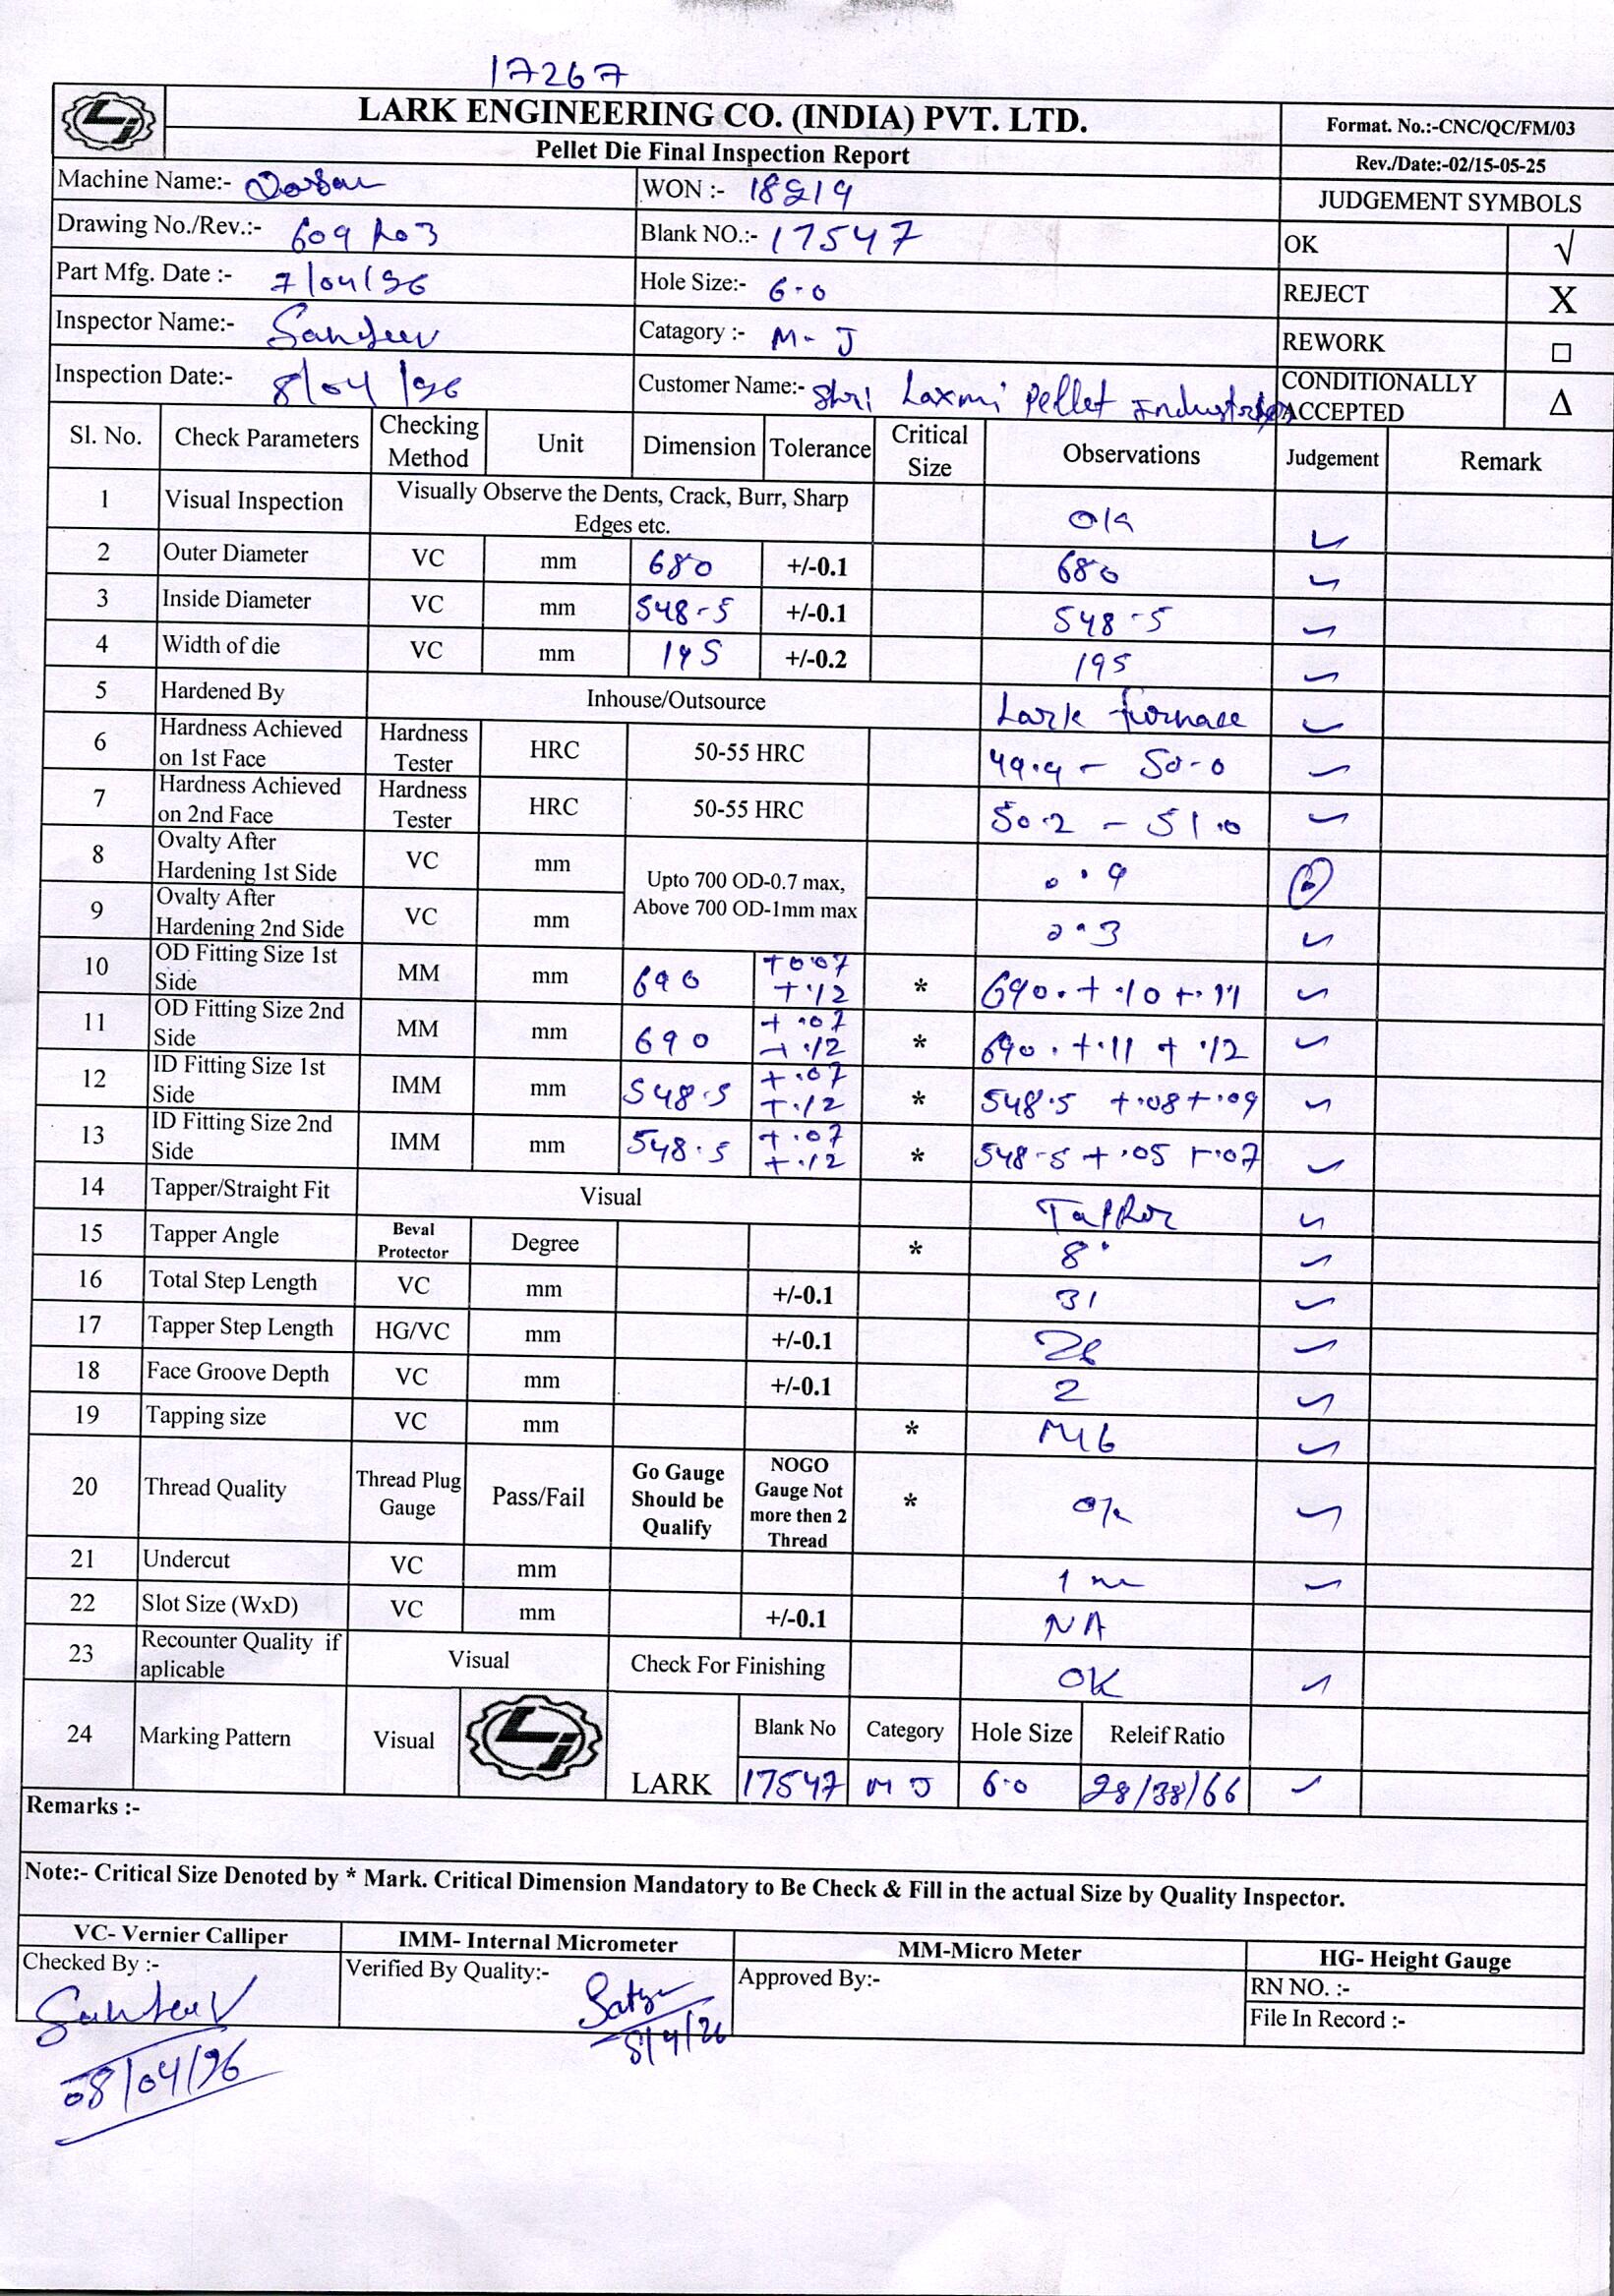 17267
LARK ENGINEERING CO. (INDIA) PVT. LTD.
Format. No.:-CNC/QC/FM/03
Pellet Die Final Inspection Report
Rev./Date:-02/15-05-25
Machine Name:-
WON :- 18219
JUDGEMENT SYMBOLS
Drawing No./Rev.:- 609 R03
Blank NO.:- 17547
OK √
Part Mfg. Date :- 7/04/26
Hole Size:- 6.0
REJECT X
Inspector Name:- Sandeev
Catagory :- M-J
REWORK □
Inspection Date:- 8/04/26
Customer Name:- Shri Laxmi Pellet Industries
CONDITIONALLY ACCEPTED Δ
Sl. No. Check Parameters Checking Method Unit Dimension Tolerance Critical Size Observations Judgement Remark
1 Visual Inspection Visually Observe the Dents, Crack, Burr, Sharp Edges etc. ok ✓
2 Outer Diameter VC mm 680 +/-0.1 680 ✓
3 Inside Diameter VC mm 548-5 +/-0.1 548-5 ✓
4 Width of die VC mm 195 +/-0.2 195 ✓
5 Hardened By Inhouse/Outsource Lark furnace ✓
6 Hardness Achieved on 1st Face Hardness Tester HRC 50-55 HRC 49.9 - 50.0 ✓
7 Hardness Achieved on 2nd Face Hardness Tester HRC 50-55 HRC 50.2 - 51.0 ✓
8 Ovalty After Hardening 1st Side VC mm Upto 700 OD-0.7 max, Above 700 OD-1mm max 0.9
9 Ovalty After Hardening 2nd Side VC mm 0.3 ✓
10 OD Fitting Size 1st Side MM mm 690 +0.07 +.12 * 690.+.10+.11 ✓
11 OD Fitting Size 2nd Side MM mm 690 +.07 +.12 * 690.+.11 +.12 ✓
12 ID Fitting Size 1st Side IMM mm 548.5 +.07 +.12 * 548.5 +.08+.09 ✓
13 ID Fitting Size 2nd Side IMM mm 548.5 +.07 +.12 * 548-5 +.05 +.07 ✓
14 Tapper/Straight Fit Visual Tapper ✓
15 Tapper Angle Beval Protector Degree * 8° ✓
16 Total Step Length VC mm +/-0.1 31 ✓
17 Tapper Step Length HG/VC mm +/-0.1 ✓
18 Face Groove Depth VC mm +/-0.1 2 ✓
19 Tapping size VC mm * M16 ✓
20 Thread Quality Thread Plug Gauge Pass/Fail Go Gauge Should be Qualify NOGO Gauge Not more then 2 Thread * ok ✓
21 Undercut VC mm 1 ✓
22 Slot Size (WxD) VC mm +/-0.1 NA
23 Recounter Quality if aplicable Visual Check For Finishing OK ✓
24 Marking Pattern Visual LARK Blank No Category Hole Size Releif Ratio
17547 M J 6.0 28/38/66 ✓
Remarks :-
Note:- Critical Size Denoted by * Mark. Critical Dimension Mandatory to Be Check & Fill in the actual Size by Quality Inspector.
VC- Vernier Calliper IMM- Internal Micrometer MM-Micro Meter HG- Height Gauge
Checked By :- Verified By Quality:- Approved By:- RN NO. :-
File In Record :-
Sandeev
08/04/26
8/4/26